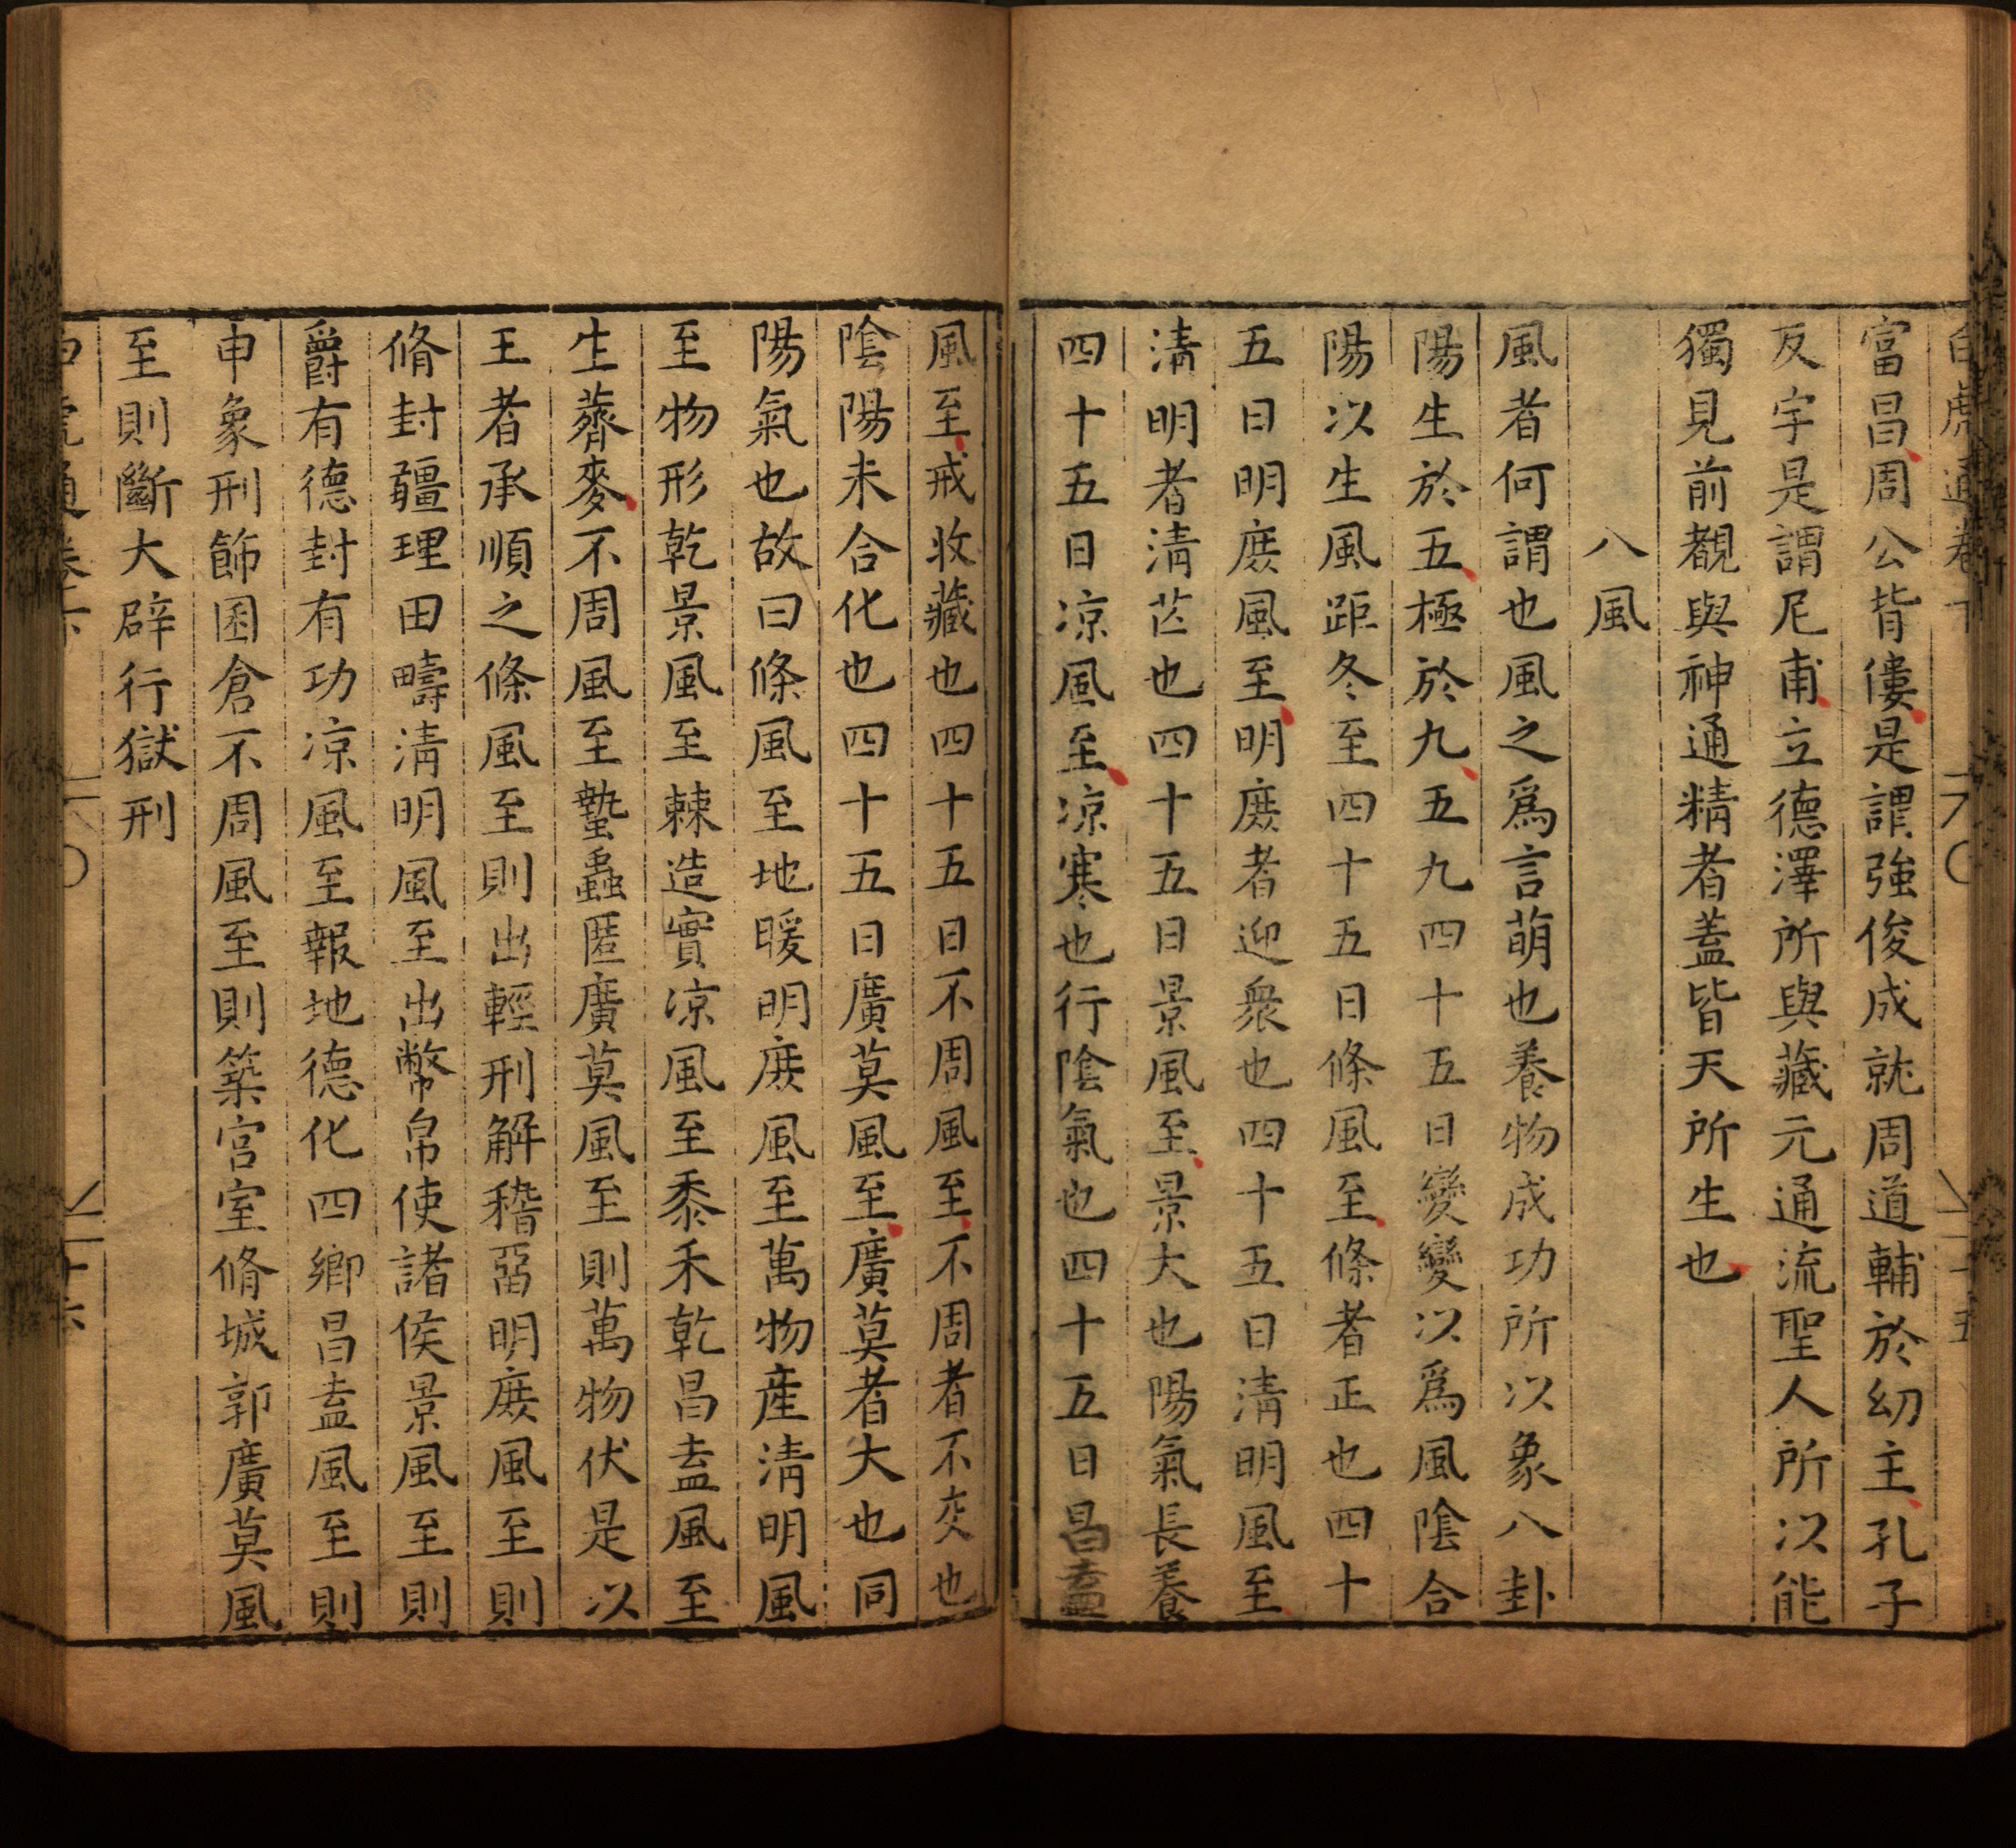 富昌周公背僂是謂強俊成就周道輔於幼主孔子
反宇是謂尼甫立德澤所與藏元通流聖人所以能
獨見前覩與神通精者蓋皆天所生也
八風
風者何謂也風之爲言萌也養物成功所以象八卦
陽生於五極於九五九四十五日變變以爲風陰合
陽以生風距冬至四十五日條風至條者正也四十
五日明庻風至明庻者迎衆也四十五日清明風至
清明者清芒也四十五日景風至景大也陽氣長養
四十五日凉風至凉寒也行陰氣也四十五日昌盍
風至戒收藏也四十五日不周風至不周者不交也
陰陽未合化也四十五日廣莫風至廣莫者大也同
陽氣也故曰條風至地暖明庻風至萬物産清明風
至物形乾景風至棘造實凉風至黍禾乾昌盍風至
生薺麥不周風至蟄蟲匿廣莫風至則萬物伏是以
王者承順之條風至則出輕刑解稽畱明庻風至則
脩封疆理田疇清明風至出幣帛使諸侯景風至則
爵有德封有功凉風至報地德化四鄉昌盍風至則
申象刑飾囷倉不周風至則築宫室脩城郭廣莫風
至則斷大辟行獄刑